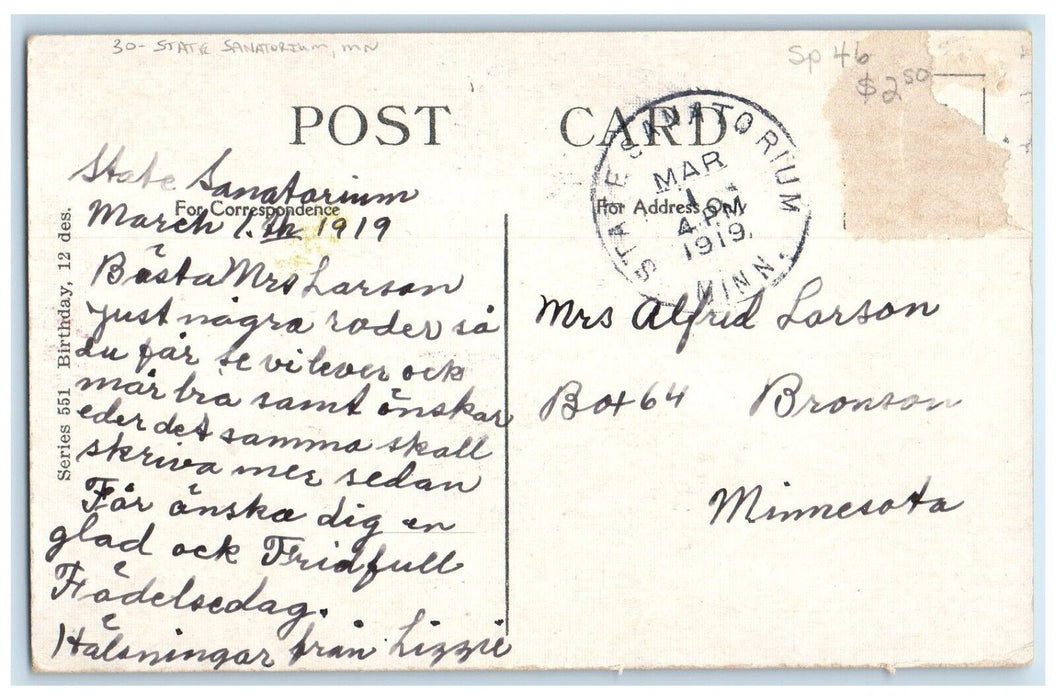 30- STATE SANATORIUM, MN
Sp 46
$2.50
POST CARD
STATE SANATORIUM
MAR
1
4 PM
1919
MINN.
For Correspondence
For Address Only
Series 551 Birthday, 12 des.
State Sanatorium
March 1.th 1919
Bästa Mrs Larson
Just några rader så
du får se vi lever ock
mår bra samt önskar
eder det samma skall
skriva mer sedan
Får önska dig en
glad ock Fridfull
Födelsedag.
Hälsningar från Lizzie
Mrs Alfred Larson
Box 64 Bronson
Minnesota